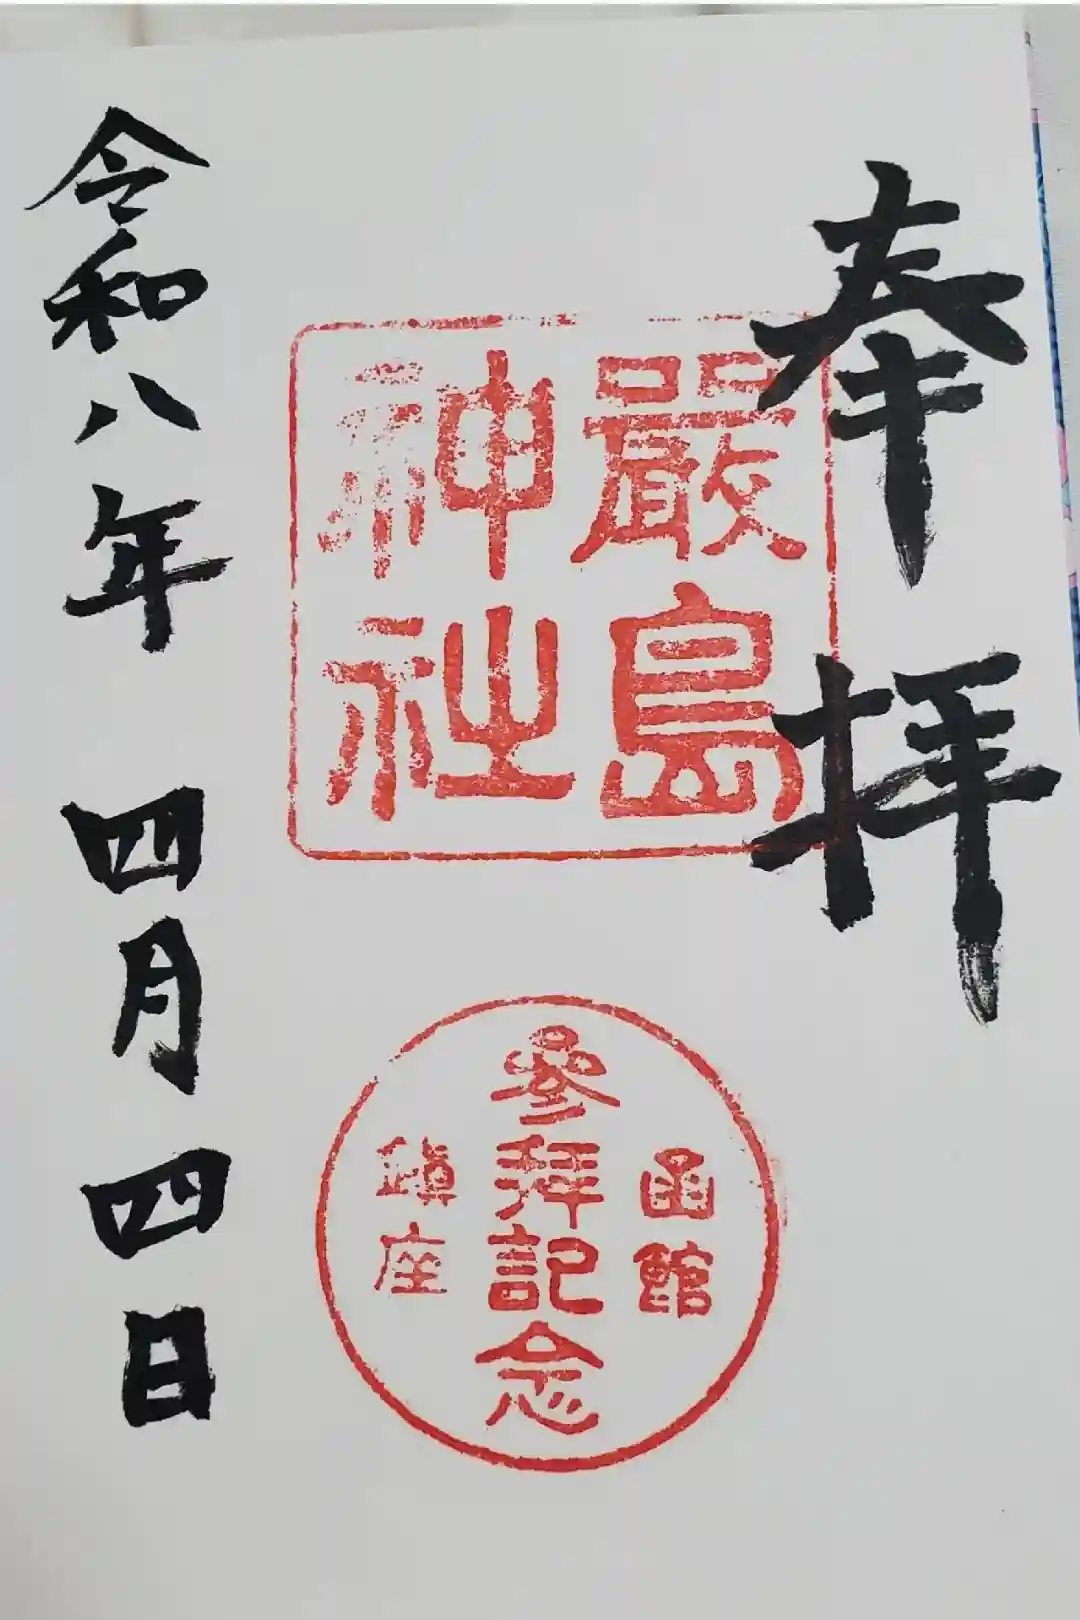 奉拝
嚴島
神社
函館
參拜記念
鎮座
令和八年 四月四日